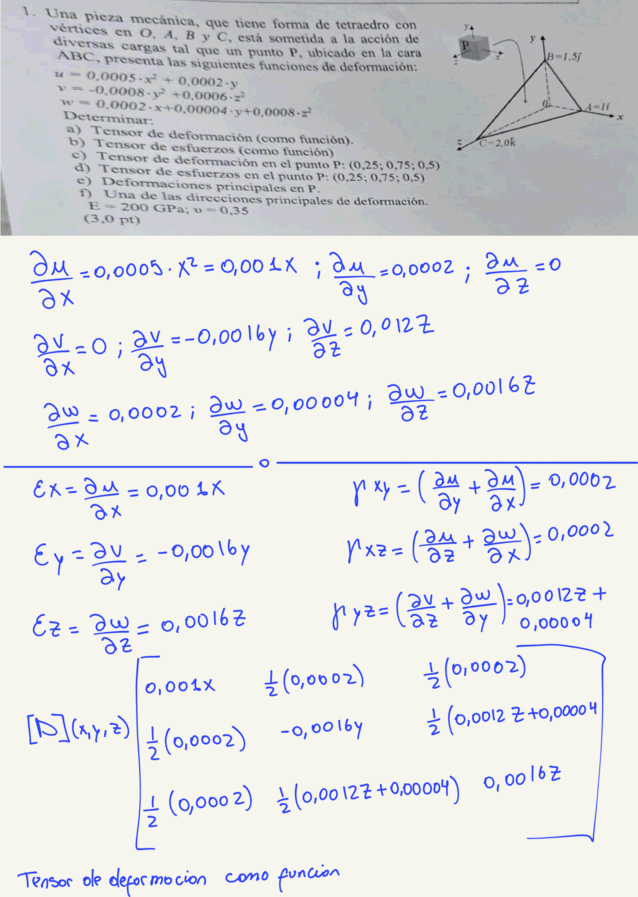 1. Una pieza mecánica, que tiene forma de tetraedro con
vértices en O, A, B y C, está sometida a la acción de
diversas cargas tal que un punto P, ubicado en la cara
ABC, presenta las siguientes funciones de deformación:
u = 0,0005·x² + 0,0002·y
v = -0,0008·y² +0,0006·z²
w = 0,0002·x+0,00004·y+0,0008·z²
Determinar:
a) Tensor de deformación (como función).
b) Tensor de esfuerzos (como función)
c) Tensor de deformación en el punto P: (0,25; 0,75; 0,5)
d) Tensor de esfuerzos en el punto P: (0,25; 0,75; 0,5)
e) Deformaciones principales en P.
f) Una de las direcciones principales de deformación.
E = 200 GPa; υ = 0,35
(3,0 pt)
y
P
z
x
y
B=1.5j
O
A=1i
x
z
C=2.0k
∂u/∂x = 0,0005·x² = 0,001x ; ∂u/∂y = 0,0002 ; ∂u/∂z = 0
∂v/∂x = 0 ; ∂v/∂y = -0,0016y ; ∂v/∂z = 0,012z
∂w/∂x = 0,0002 ; ∂w/∂y = 0,00004 ; ∂w/∂z = 0,0016z
Ex = ∂u/∂x = 0,001x
γxy = (∂u/∂y + ∂u/∂x) = 0,0002
Ey = ∂v/∂y = -0,0016y
γxz = (∂u/∂z + ∂w/∂x) = 0,0002
Ez = ∂w/∂z = 0,0016z
γyz = (∂v/∂z + ∂w/∂y) = 0,0012z +
0,00004
[D](x,y,z)
0,001x ½(0,0002) ½(0,0002)
½(0,0002) -0,0016y ½(0,0012z+0,00004
½(0,0002) ½(0,0012z+0,00004) 0,0016z
Tensor de deformocion como función